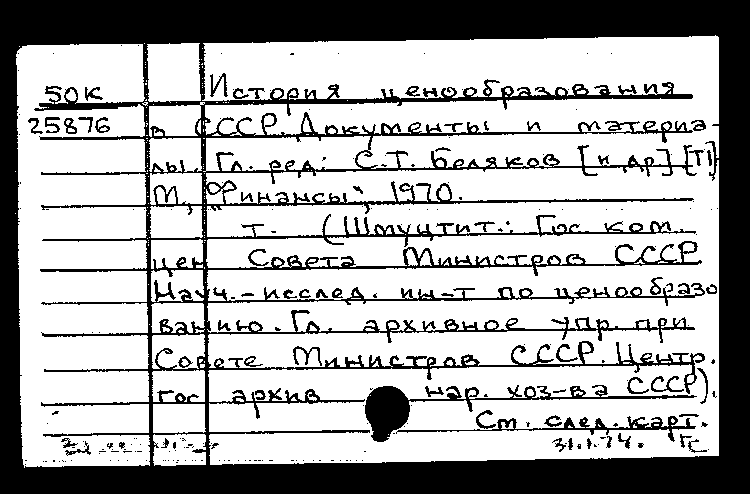 50К История ценообразования
25876 в СССР. Документы и материа-
лы. Гл. ред: С.Т. Беляков [и др] [Т1]
М, "Финансы", 1970.
т. (Шмуцтит.: Гос. ком.
цен Совета Министров СССР
Науч.-исслед. ин-т по ценообразо
ванию. Гл. архивное упр. при
Совете Министров СССР. Центр.
гос архив нар. хоз-ва СССР).
См. след. карт.
31.1.74.